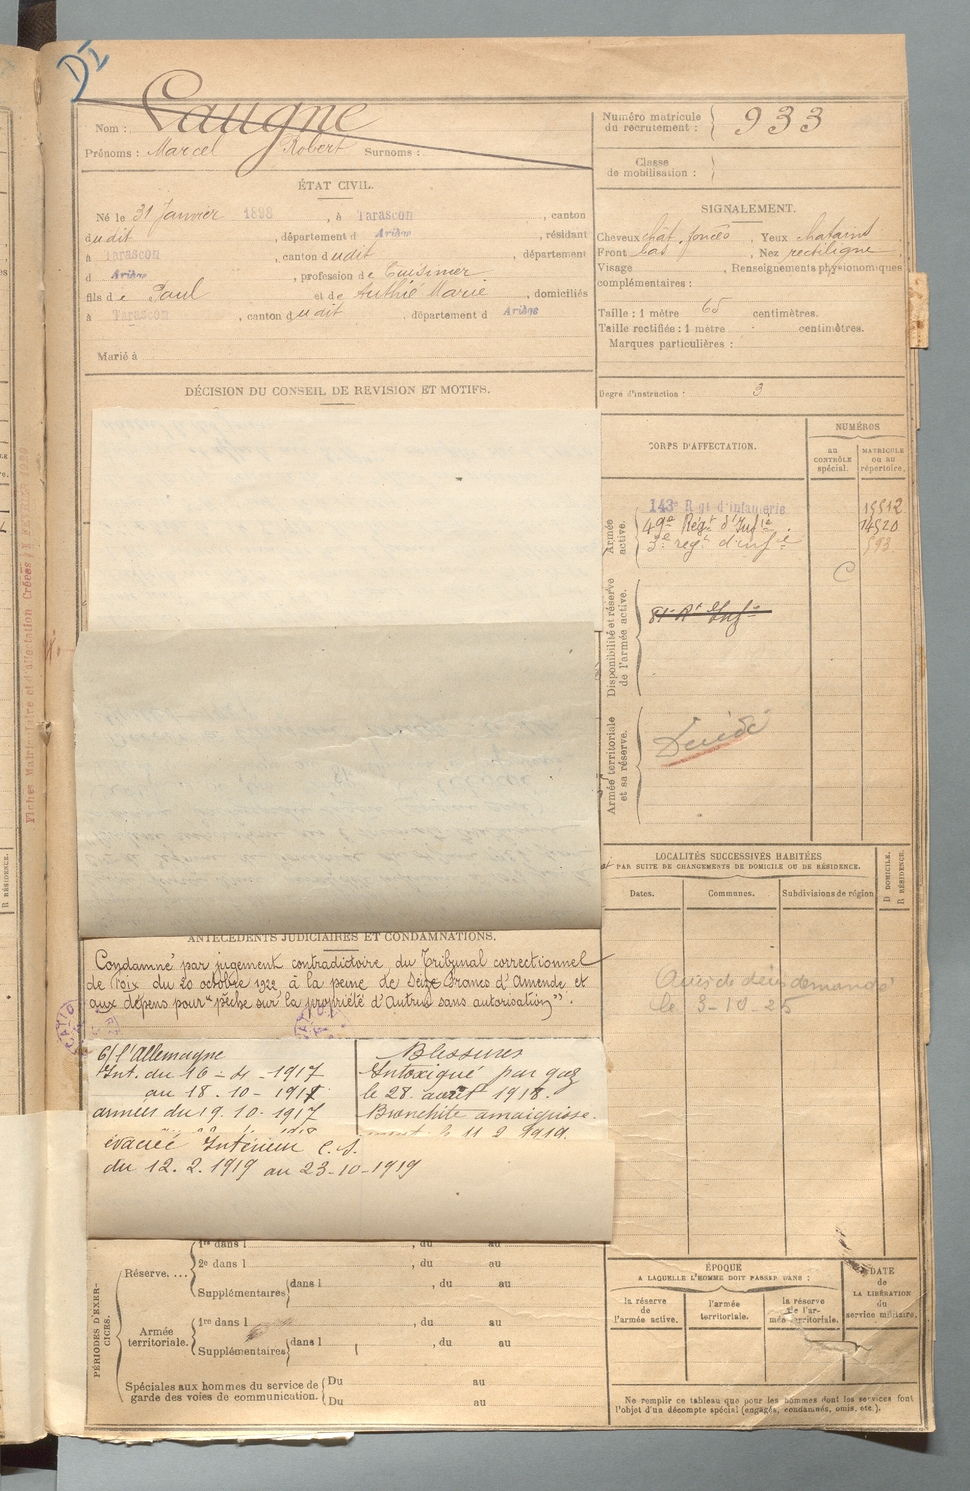 DI
Nom : Laugne
Prénoms : Marcel Robert Surnoms :
Numéro matricule du recrutement : 933
Classe de mobilisation :
ÉTAT CIVIL.
Né le 31 Janvier 1898, à Tarascon, canton
dudit, département d Ariège, résidant
à Tarascon, canton dudit, département
d Ariège, profession de Cuisinier
fils de Paul et de Authié Marie, domiciliés
à Tarascon, canton dudit, département d Ariège
Marié à
SIGNALEMENT.
Cheveux chât. foncés, Yeux chatains
Front bas, Nez rectiligne
Visage , Renseignements physionomiques
complémentaires :
Taille : 1 mètre 65 centimètres.
Taille rectifiée : 1 mètre centimètres.
Marques particulières :
Degré d'instruction : 3
DÉCISION DU CONSEIL DE REVISION ET MOTIFS.
CORPS D'AFFECTATION.
NUMÉROS
au CONTRÔLE spécial.
MATRICULE ou au répertoire.
Armée active.
143e Régt d'infanterie 15512
49e Régt d'Infie 14520
3e regt d'infie 593
C
Disponibilité et réserve de l'armée active.
Armée territoriale et sa réserve.
Décédé
Fiches Matriculaire et d'affectation Créées
LOCALITÉS SUCCESSIVES HABITÉES
PAR SUITE DE CHANGEMENTS DE DOMICILE OU DE RÉSIDENCE.
Dates.
Communes.
Subdivisions de région
D DOMICILE.
R RÉSIDENCE.
Avis de décès demandé
le 3-10-25
ANTÉCÉDENTS JUDICIAIRES ET CONDAMNATIONS.
Condamné par jugement contradictoire du Tribunal correctionnel
de Foix du 20 octobre 1922 à la peine de Seize Francs d'Amende et
aux dépens pour "pêche sur la propriété d'Autrui sans autorisation".
C/ l'Allemagne
Int. du 16-4-1917
au 18.10-1917
armées du 19.10.1917
Blessures
Intoxiqué par gaz
le 28 août 1918.
Bronchite
le 11 2 1919.
évacué Intérieur C.S.
du 12.2.1919 au 23-10-1919
PÉRIODES D'EXERCICES.
Réserve....
1re dans l , du au
2e dans l , du au
Supplémentaires dans l , du au
Armée territoriale.
1re dans l , du au
Supplémentaires dans l , du au
Spéciales aux hommes du service de garde des voies de communication.
Du au
Du au
ÉPOQUE
A LAQUELLE L'HOMME DOIT PASSER DANS :
la réserve de l'armée active.
l'armée territoriale.
la réserve de l'armée territoriale.
DATE de LA LIBÉRATION du service militaire.
Ne remplir ce tableau que pour les hommes dont les services font
l'objet d'un décompte spécial (engagés, condamnés, omis, etc.).